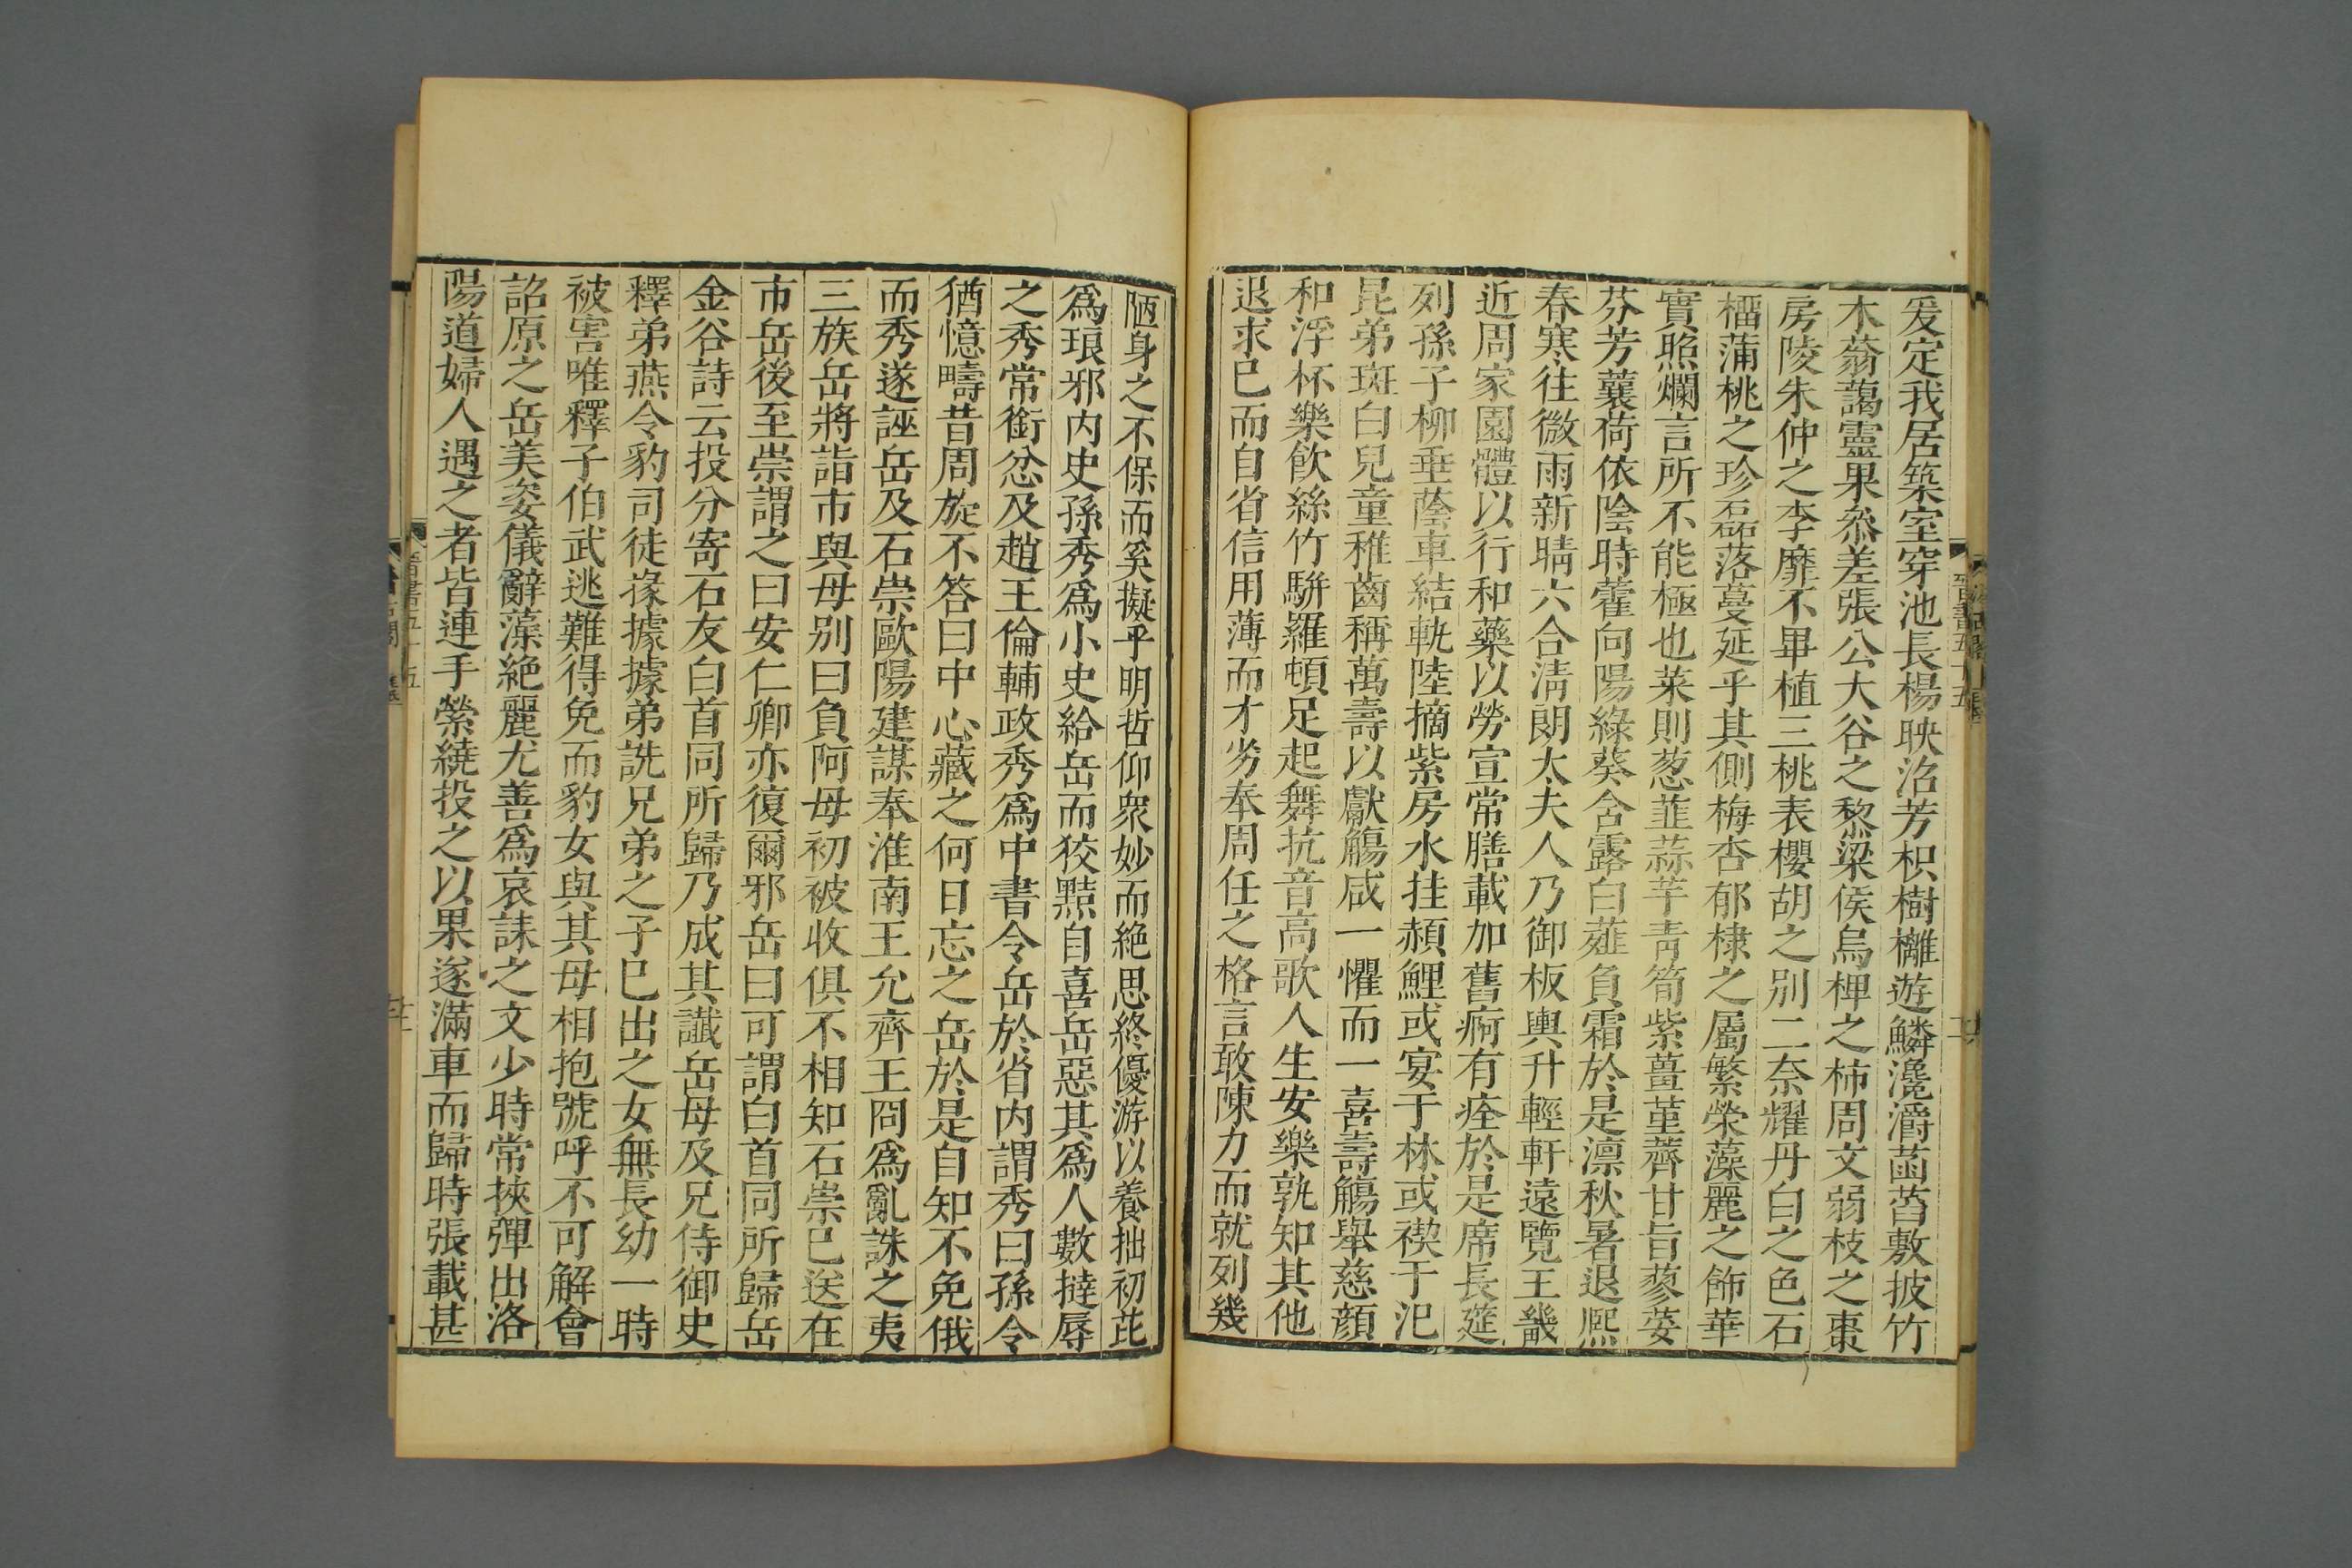 爰定我居築室穿池長楊映沼芳枳樹欐遊鱗瀺灂菡萏敷披竹
木蓊藹靈果叅差張公大谷之黎梁侯烏椑之柿周文弱枝之棗
房陵朱仲之李靡不畢植三桃表櫻胡之別二柰耀丹白之色石
榴蒲桃之珍磊落蔓延乎其側梅杏郁棣之屬繁榮藻麗之飾華
實照爛言所不能極也菜則葱韮蒜芋靑筍紫薑菫薺甘旨蓼荽
芬芳蘘荷依陰時藿向陽綠葵含露白薤負霜於是凛秋暑退熈
春寒往微雨新晴六合淸朗太夫人乃御板輿升輕軒遠覽王畿
近周家園體以行和藥以勞宣常膳載加舊痾有痊於是席長筵
列孫子柳垂蔭車結軌陸摘紫房水挂頳鯉或宴于林或禊于汜
昆弟斑白兒童稚齒稱萬壽以獻觴咸一懼而一喜壽觴舉慈顏
和浮杯樂飮絲竹駢羅頓足起舞抗音高歌人生安樂孰知其他
退求已而自省信用薄而才劣奉周任之格言敢陳力而就列幾
陋身之不保而奚擬乎明哲仰衆妙而絶思終優游以養拙初芘
爲琅邪内史孫秀爲小史給岳而狡黠自喜岳惡其爲人數撻辱
之秀常銜忿及趙王倫輔政秀爲中書令岳於省内謂秀曰孫令
猶憶疇昔周旋不答曰中心藏之何日忘之岳於是自知不免俄
而秀遂誣岳及石崇歐陽建謀奉淮南王允齊王冏爲亂誅之夷
三族岳將詣市與母别曰負阿母初被收俱不相知石崇已送在
市岳後至崇謂之曰安仁卿亦復爾邪岳曰可謂白首同所歸岳
金谷詩云投分寄石友白首同所歸乃成其讖岳母及兄侍御史
釋弟燕令豹司徒掾據據弟詵兄弟之子已出之女無長幼一時
被害唯釋子伯武逃難得免而豹女與其母相抱號呼不可解會
詔原之岳美姿儀辭藻絶麗尤善爲哀誄之文少時常挾彈出洛
陽道婦人遇之者皆連手縈繞投之以果遂滿車而歸時張載甚